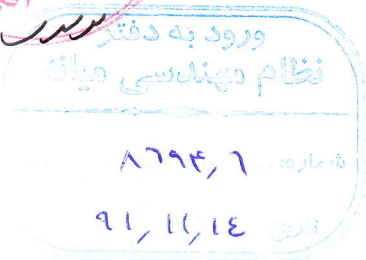 ورود به دفتر
نظام مهندسی میانه
شماره: ۸۶۹۴٫۶
تاریخ ۹۱٫۱۱٫۱٤